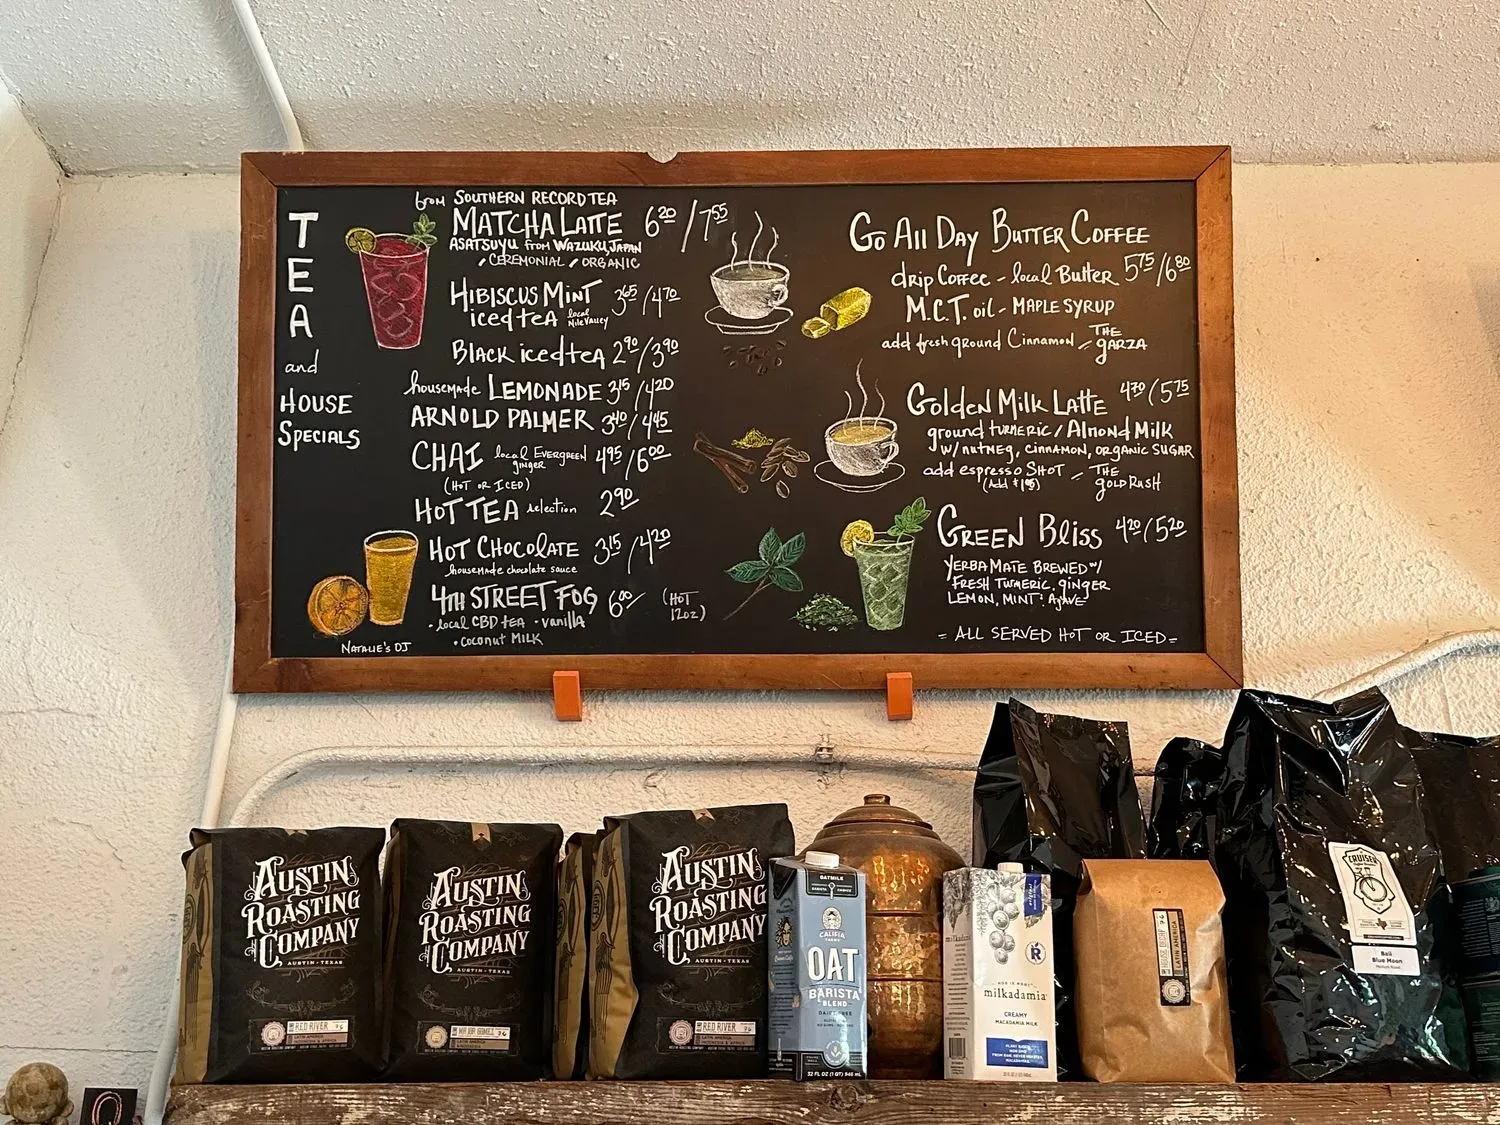 TEA
and
HOUSE
SPECIALS
from SOUTHERN RECORD TEA
MATCHA LATTE 6.20 / 7.55
ASATSUYU from WAZUKU, JAPAN
/ CEREMONIAL / ORGANIC
HIBISCUS MINT
iced tea local Nile Valley 3.65 / 4.70
BLACK iced tea 2.90 / 3.90
housemade LEMONADE 3.15 / 4.20
ARNOLD PALMER 3.40 / 4.45
CHAI local EVERGREEN GINGER 4.95 / 6.00
(HOT OR ICED)
HOT TEA selection 2.90
HOT CHOCOLATE 3.15 / 4.20
housemade chocolate sauce
4TH STREET FOG 6.00 (HOT 12oz)
• local CBD tea • vanilla
• coconut MILK
NATALIE'S OJ
GO All DAY BUTTER COFFEE
drip Coffee - local Butter 5.75 / 6.80
M.C.T. oil - MAPLE SYRUP
add fresh ground Cinnamon - THE GARZA
Golden Milk Latte 4.70 / 5.75
ground TURMERIC / Almond Milk
w/ nutmeg, cinnamon, ORGANIC SUGAR
add espresso SHOT - THE GOLD RUSH
GREEN Bliss 4.20 / 5.20
YERBA MATE BREWED w/
FRESH TUMERIC, ginger
LEMON, MINT : Agave
- ALL SERVED HOT OR ICED -
AUSTIN
ROASTING
COMPANY
AUSTIN • TEXAS
RED RIVER
LATIN AMERICA
AUSTIN
ROASTING
COMPANY
AUSTIN • TEXAS
LATIN AMERICA
AUSTIN
ROASTING
COMPANY
AUSTIN • TEXAS
RED RIVER
LATIN AMERICA
OATMILK
CALIFIA
FARMS
OAT
BARISTA
BLEND
DAIRY FREE
32 FL OZ (1 QT) 946 mL
milkadamia
CREAMY
MACADAMIA MILK
LATIN AMERICA
CRUISER
Bali
Blue Moon
Medium Roast
Q